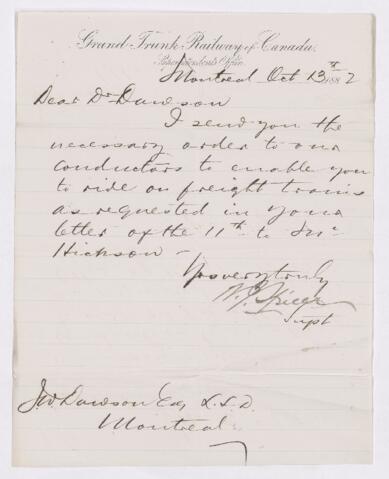 Grand Trunk Railway of Canada.
Superintendent's Office.
Montreal Oct 13th 1882
Dear Dr Dawson
I send you the
necessary order to our
conductors to enable you
to ride on freight trains
as requested in your
letter of the 11th to Mr
Hickson –
Yours very truly
W. J. Spicer
Supt
J W Dawson Esq L.L.D.
Montreal